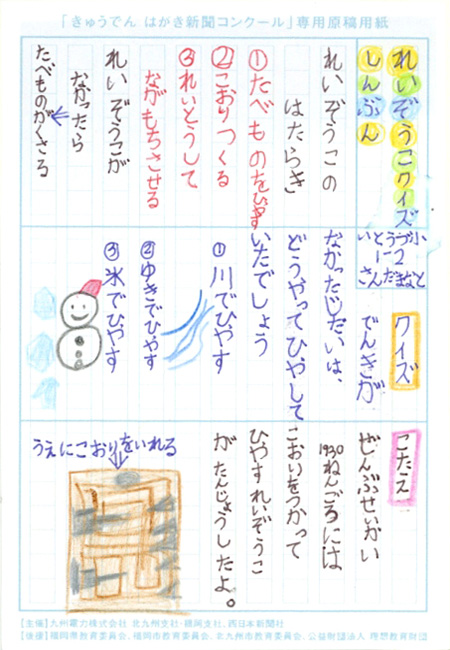 「きゅうでん はがき新聞コンクール」専用原稿用紙
れいぞうこクイズ
しんぶん
いとうづ小
1-2
さんだまなと
れいぞうこの
はたらき
①たべものをひやす
②こおりつくる
③れいとうして
ながもちさせる
れいぞうこが
なかったら
たべものがくさる
クイズ
でんきが
なかったじだいは、
どうやってひやして
いたでしょう
①川でひやす
②ゆきでひやす
③氷でひやす
こたえ
ぜんぶせいかい
1930ねんごろには
こおいをつかって
ひやすれいぞうこ
がたんじょうしたよ。
うえにこおりをいれる
【主催】九州電力株式会社 北九州支社・福岡支社、西日本新聞社
【後援】福岡県教育委員会、福岡市教育委員会、北九州市教育委員会、公益財団法人 理想教育財団